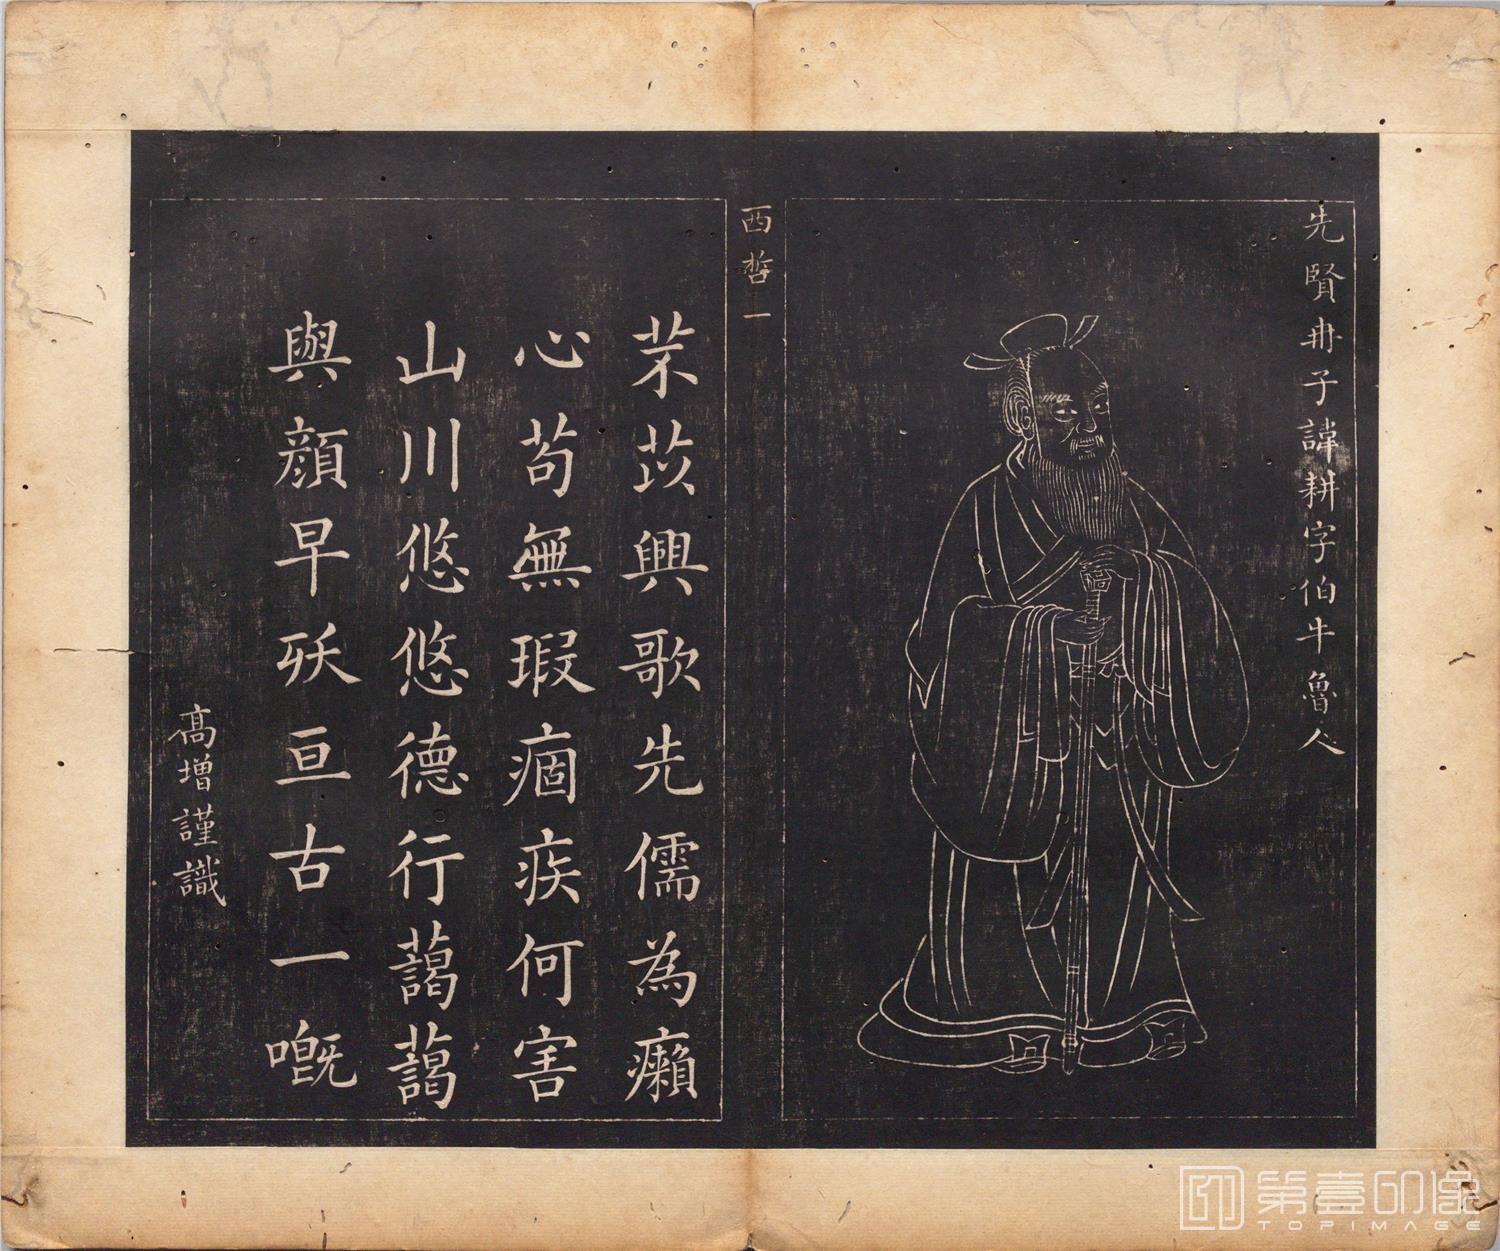 先賢冉子諱耕字伯牛魯人
西哲一
芣苡興歌先儒為癩
心苟無瑕痼疾何害
山川悠悠德行藹藹
與顏早殀亘古一嘅
高增謹識
第壹印像
TOPIMAGE